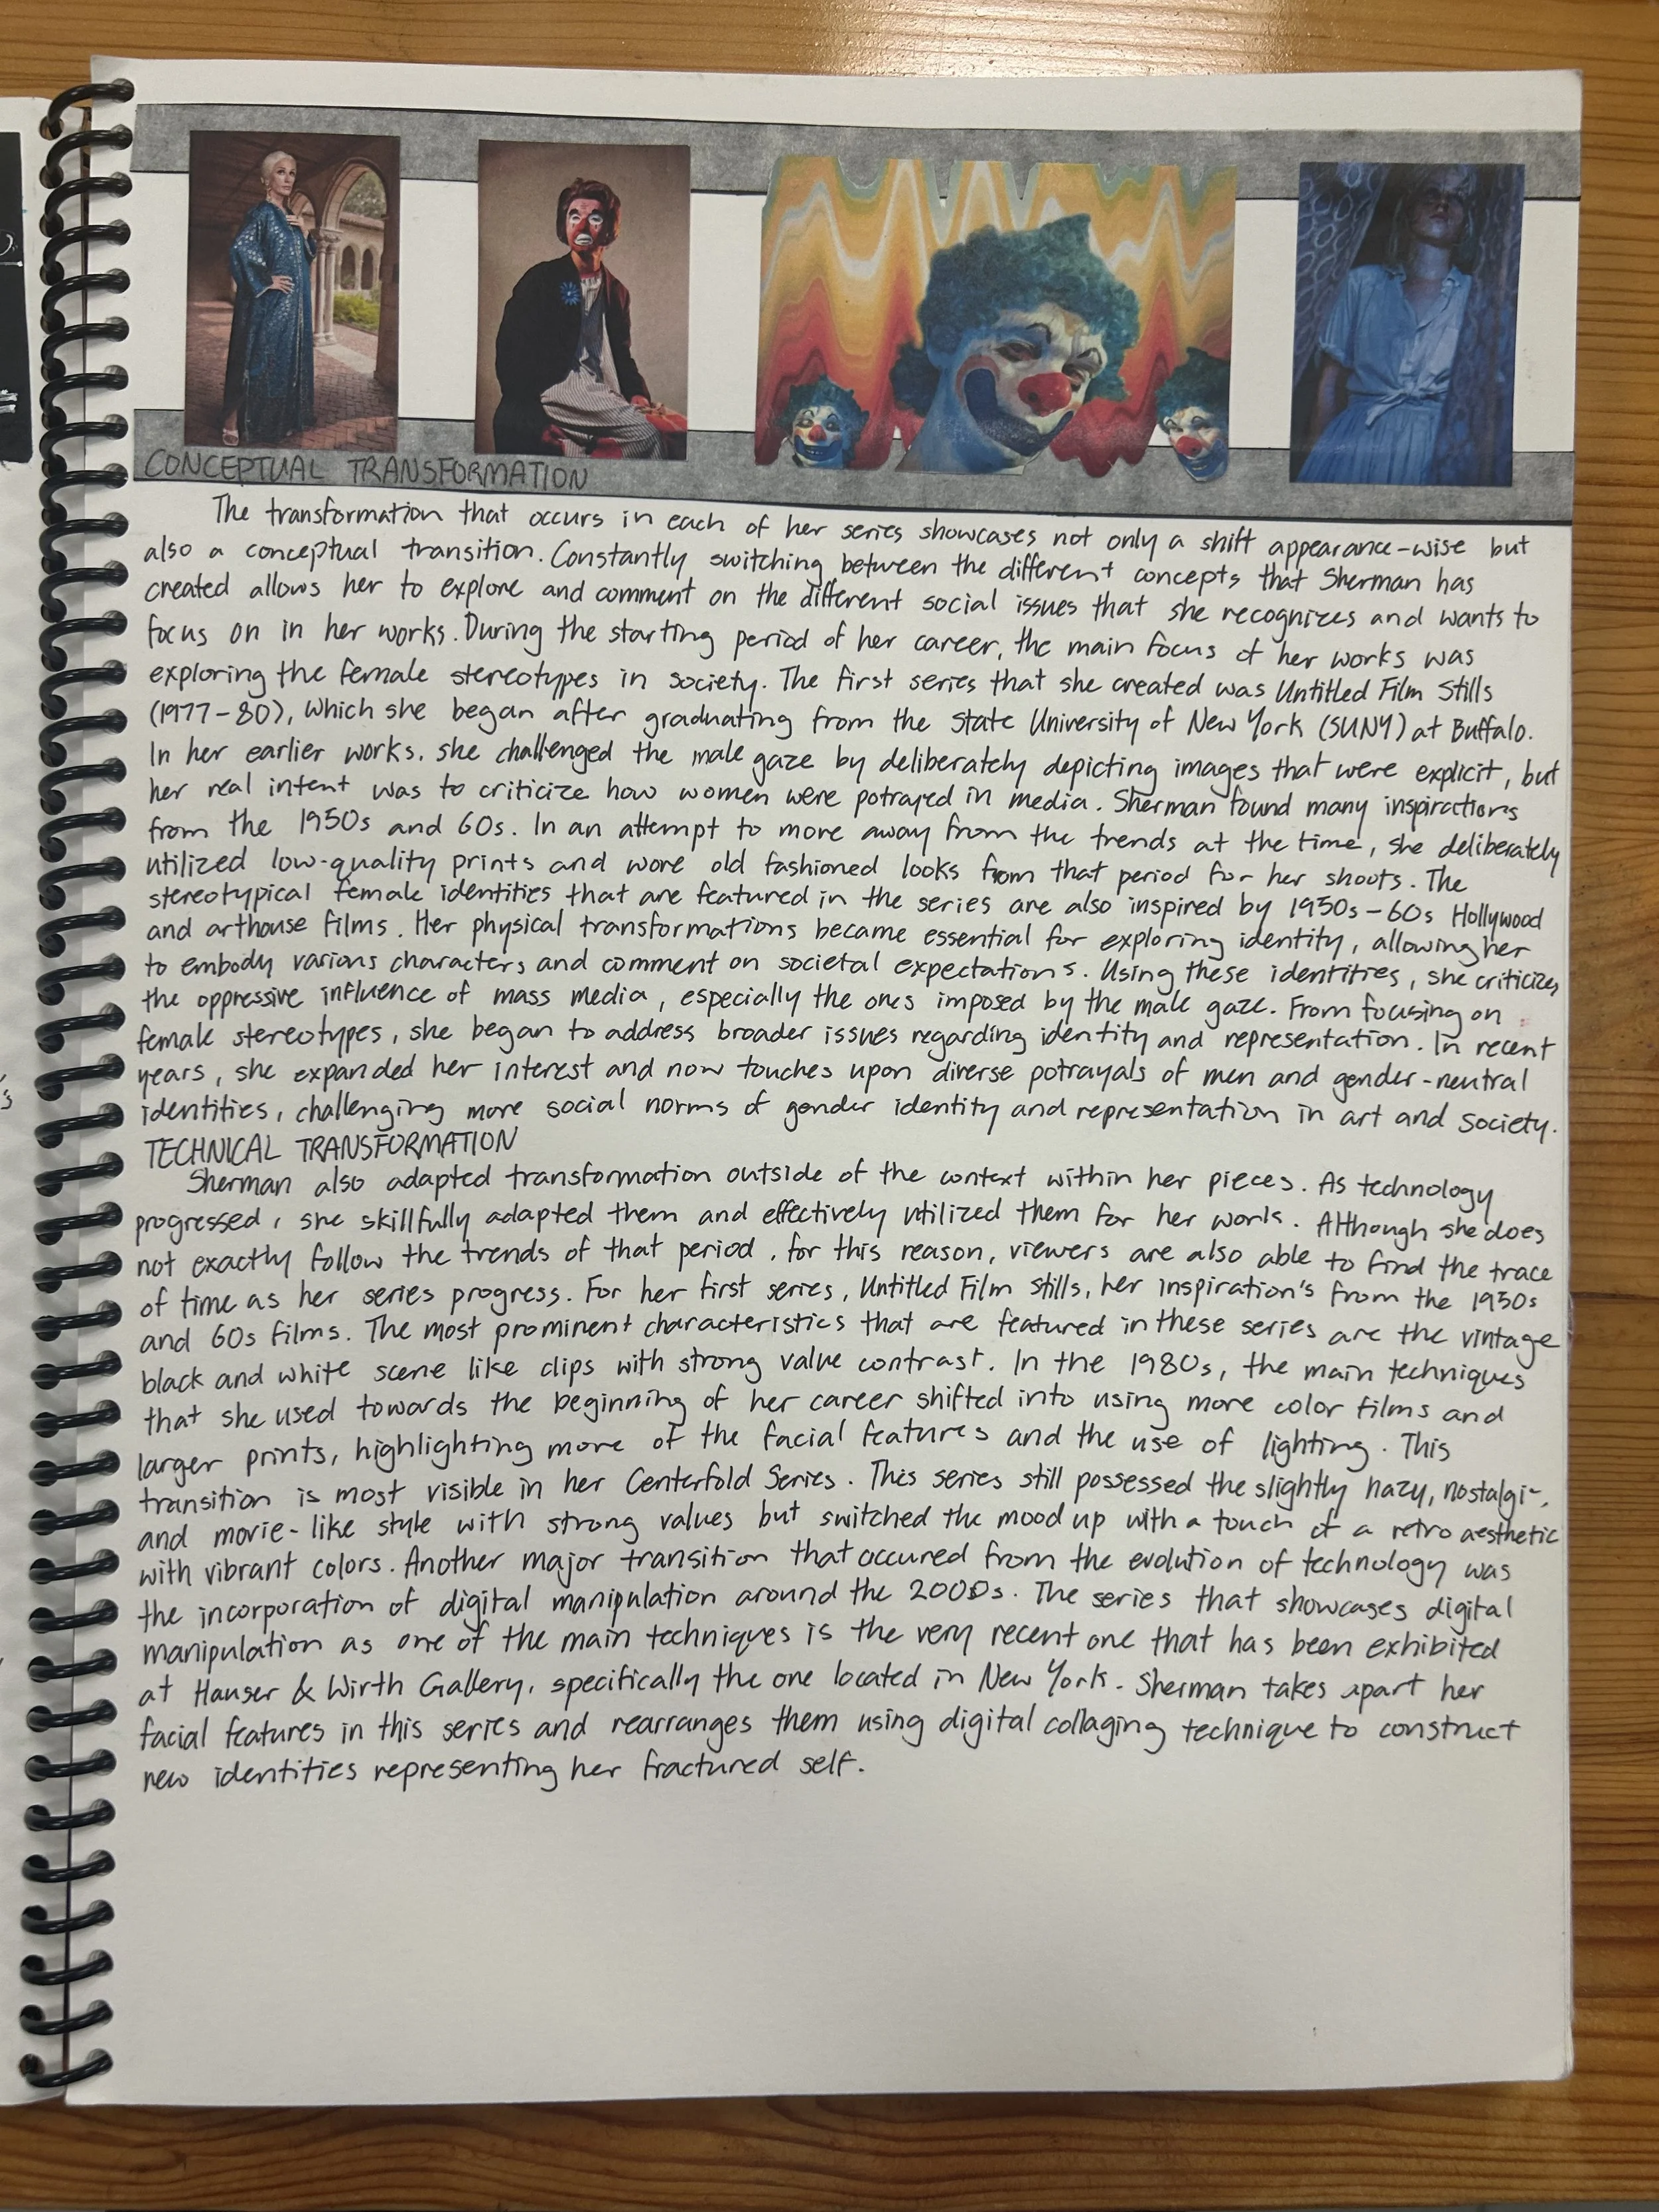 CONCEPTUAL TRANSFORMATION
The transformation that occurs in each of her series showcases not only a shift appearance-wise but
also a conceptual transition. Constantly switching between the different concepts that Sherman has
created allows her to explore and comment on the different social issues that she recognizes and wants to
focus on in her works. During the starting period of her career, the main focus of her works was
exploring the female stereotypes in society. The first series that she created was Untitled Film Stills
(1977-80), which she began after graduating from the State University of New York (SUNY) at Buffalo.
In her earlier works, she challenged the male gaze by deliberately depicting images that were explicit, but
her real intent was to criticize how women were potrayed in media. Sherman found many inspirations
from the 1950s and 60s. In an attempt to more away from the trends at the time, she deliberately
utilized low-quality prints and wore old fashioned looks from that period for her shoots. The
stereotypical female identities that are featured in the series are also inspired by 1950s-60s Hollywood
and arthouse films. Her physical transformations became essential for exploring identity, allowing her
to embody various characters and comment on societal expectations. Using these identities, she criticizes
the oppressive influence of mass media, especially the ones imposed by the male gaze. From focusing on
female stereotypes, she began to address broader issues regarding identity and representation. In recent
years, she expanded her interest and now touches upon diverse potrayals of men and gender-neutral
identities, challenging more social norms of gender identity and representation in art and society.
TECHNICAL TRANSFORMATION
Sherman also adapted transformation outside of the context within her pieces. As technology
progressed, she skillfully adapted them and effectively utilized them for her work. Although she does
not exactly follow the trends of that period, for this reason, viewers are also able to find the trace
of time as her series progress. For her first series, Untitled Film Stills, her inspiration's from the 1950s
and 60s films. The most prominent characteristics that are featured in these series are the vintage
black and white scene like clips with strong value contrast. In the 1980s, the main techniques
that she used towards the beginning of her career shifted into using more color films and
larger prints, highlighting more of the facial features and the use of lighting. This
transition is most visible in her Centerfold Series. This series still possessed the slightly hazy,
and movie-like style with strong values but switched the mood up with a touch of a retro aesthetic
with vibrant colors. Another major transition that occured from the evolution of technology was
the incorporation of digital manipulation around the 2000s. The series that showcases digital
manipulation as one of the main techniques is the very recent one that has been exhibited
at Hauser & Wirth Gallery, specifically the one located in New York. Sherman takes apart her
facial features in this series and rearranges them using digital collaging technique to construct
new identities representing her fractured self.